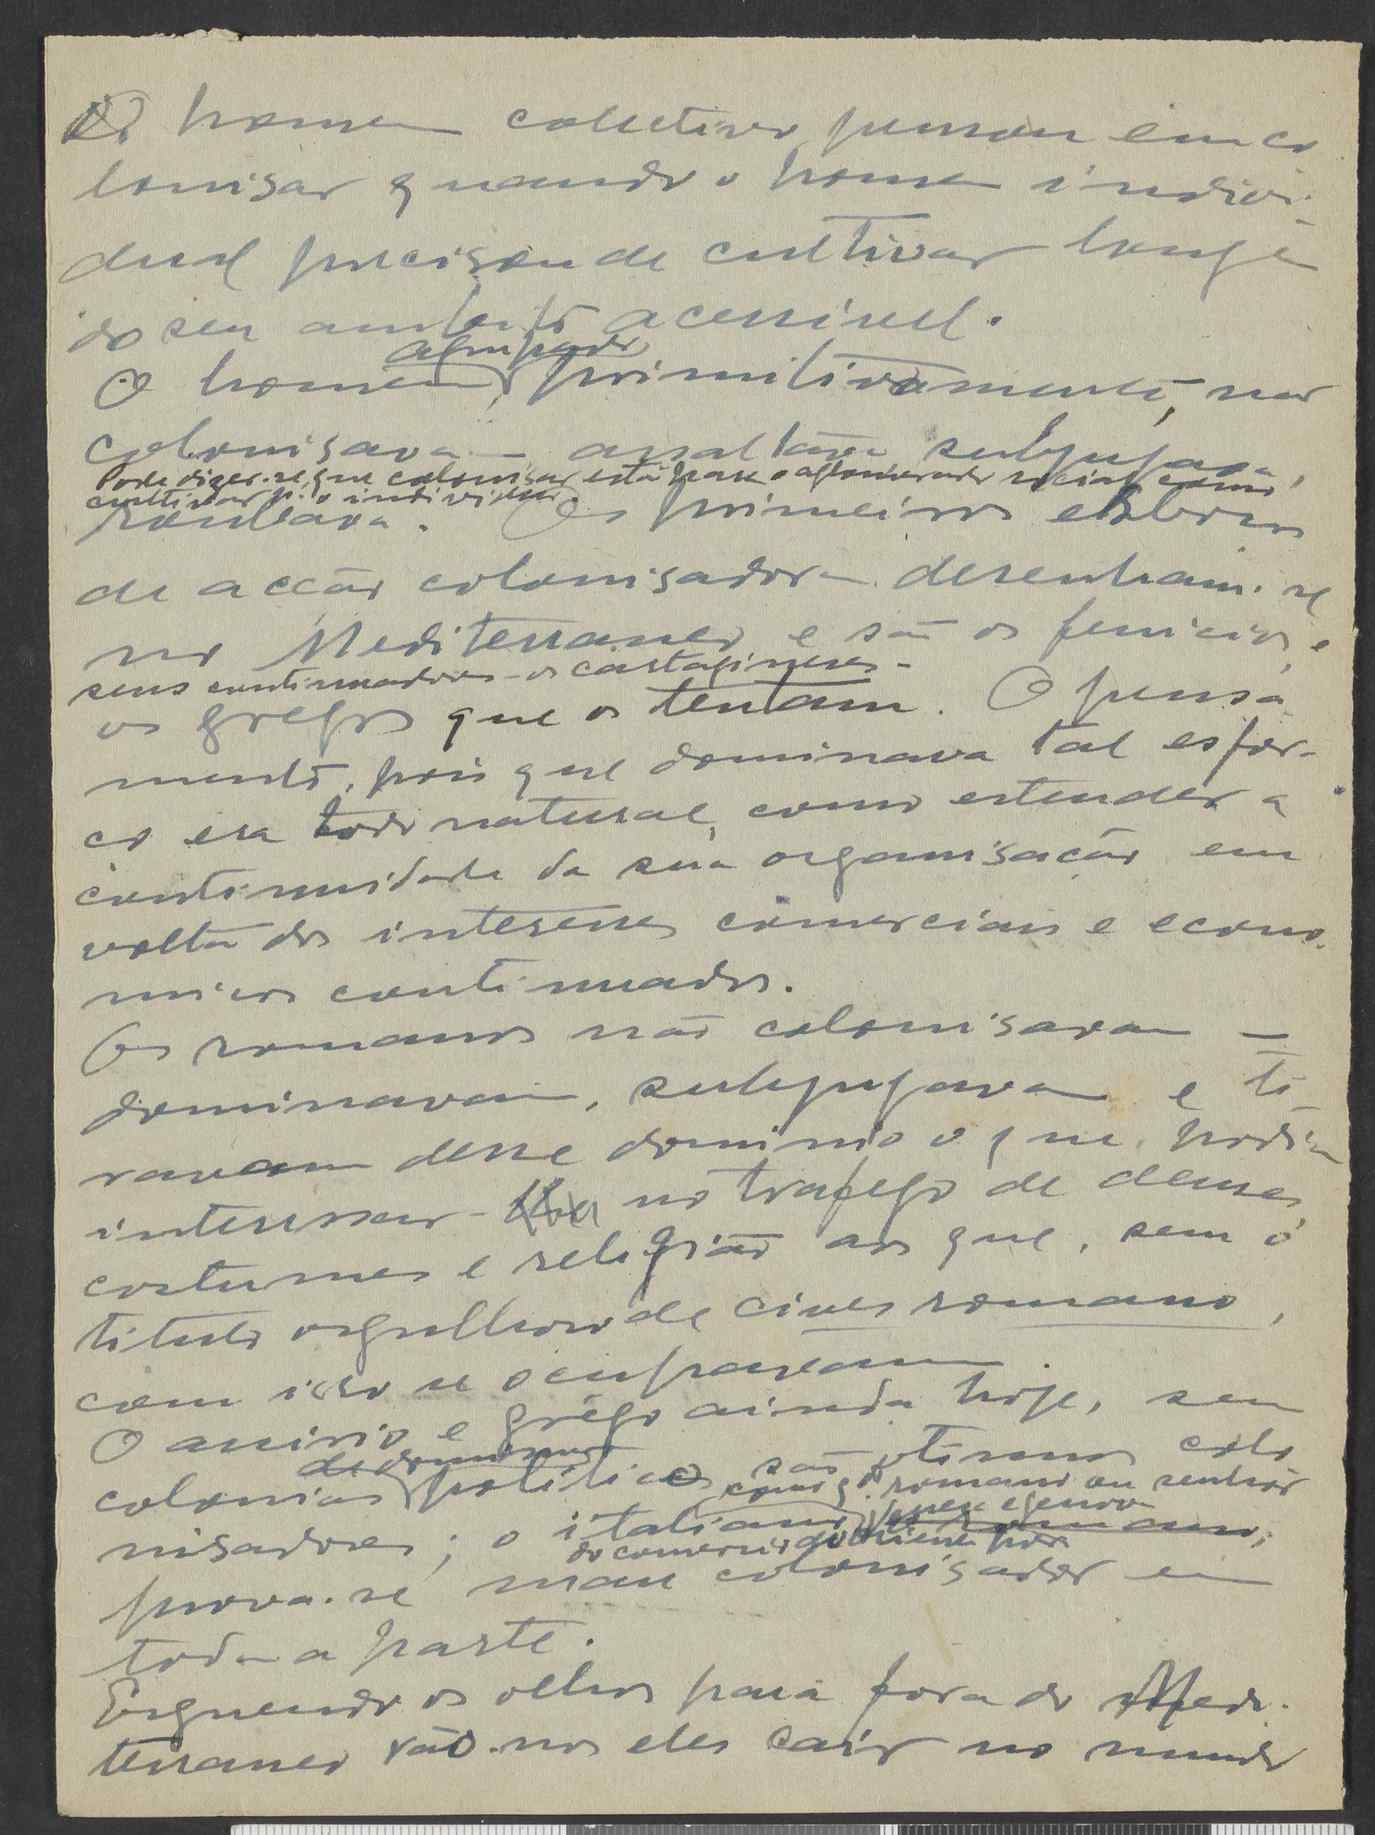 O homem colectivo pensou em co
lonisar quando o homem indivi-
dual precisou de cultivar longe
do seu ambito acessivel.
agrupado
O homem, primitivamente, não
colonisava — assaltava, subjugava,
Pode dizer-se que colonisar está para o aglomerado social como
cultivar p.ª o individuo.
roubava. Os primeiros esboços
de acção colonisadora desenham-se
no Mediterraneo e são os fenicios, e
seus continuadores - os cartagineses -
os gregos que os tentam. O pensa
mento, pois que dominava tal esfor-
ço era todo natural, como estender a
continuidade da sua organisação em
volta dos interesses comerciais e econo-
micos continuados.
Os romanos não colonisavam —
dominavam, subjugavam e ti-
ravam desse dominio o que podia
interessar no trafego de deuses,
costumes e religião aos que, sem o
titulo orgulhoso de cives romano,
com isso se ocupavam.
O assirio e grégo ainda hoje, sem
de dominio
colonias politicas são otimos colo
como q.do romano ou senhor
nisadores; o italiano, romano,
Veneza e Genova
do comercio do Oriente por
prova-se mau colonisador em
toda a parte.
Erguendo os olhos para fora do Medi-
terraneo vão-nos eles cair no mundo